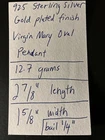 925 Sterling Silver
Gold plated finish
Virgin Mary Oval
Pendant
12.7 grams
2 7/8" length
1 5/8" width
bail 1/4"